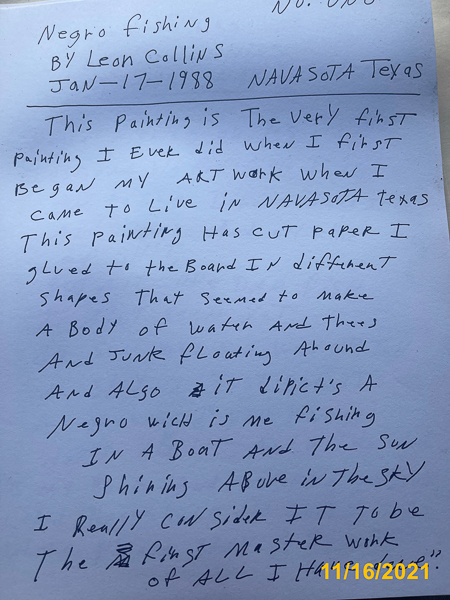 No. ONE
Negro fishing
BY Leon Collins
JAN-17-1988 NAVASOTA Texas
This Painting is The Very first
Painting I Ever did When I first
Began MY ART WORK When I
Came To Live in NAVASOTA Texas
This Painting Has CUT PAPER I
glued to the Board IN different
Shapes That Seemed to Make
A Body of water AND Threes
And Junk floating Around
And Algo it dipict's A
Negro wich is me fishing
IN A Boat AND The SUN
Shining ABove in The SKY
I Really Consider IT To be
The first Master Work
of ALL I Have done."
11/16/2021